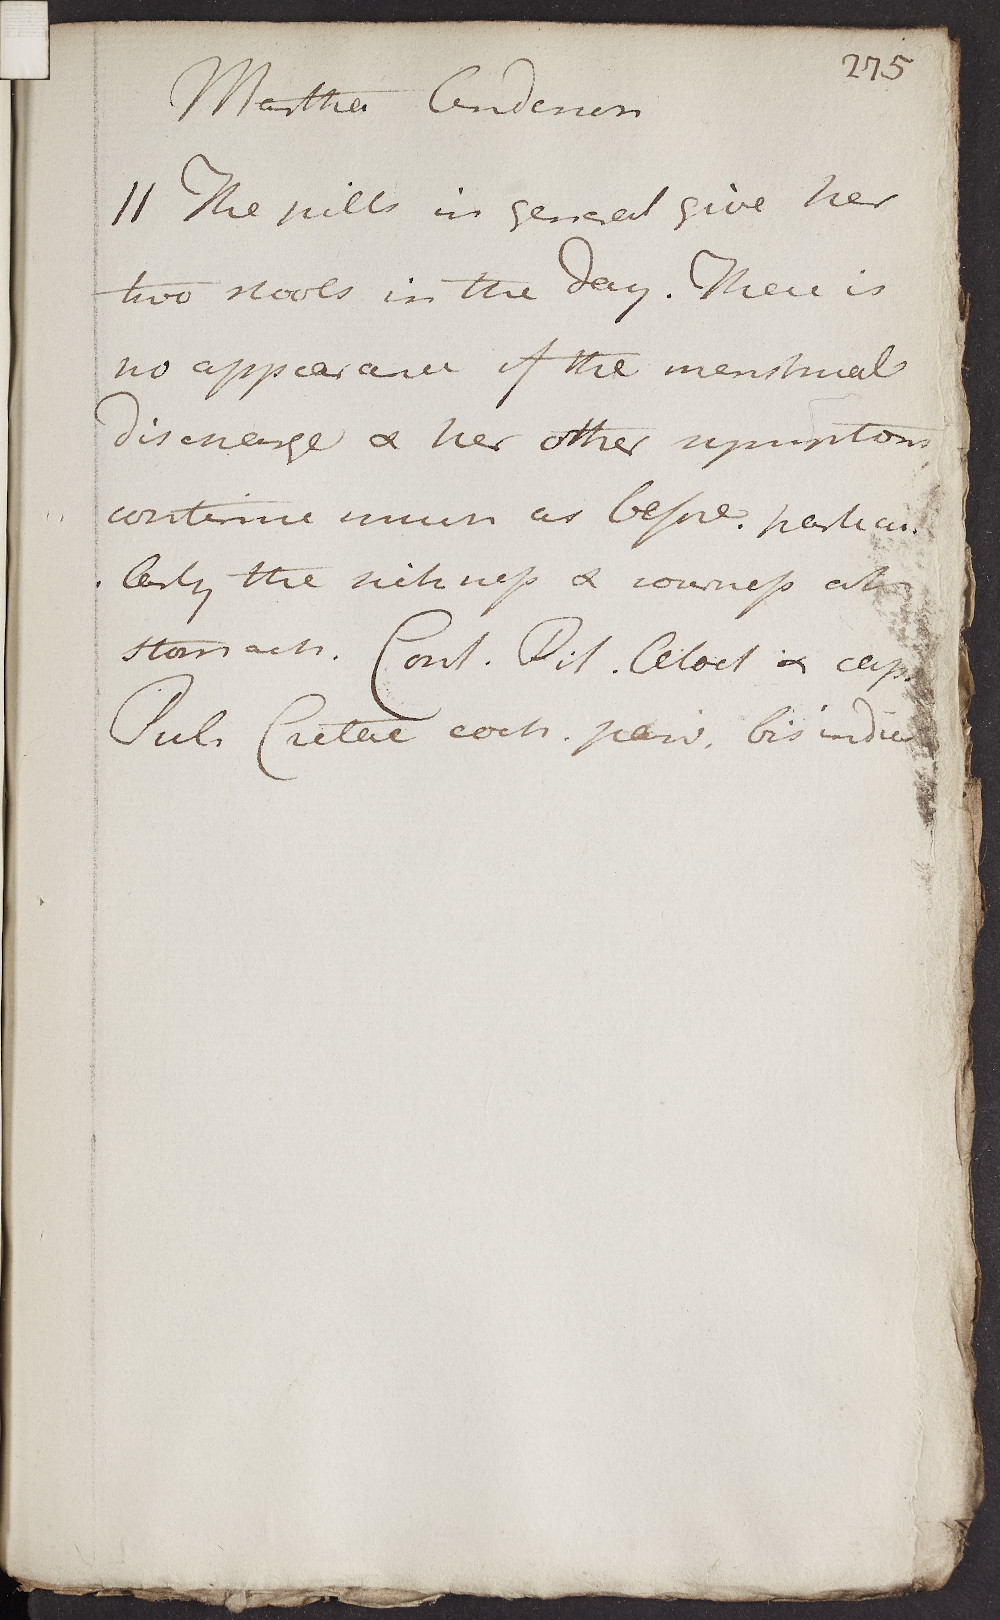 275
Martha Anderson
11 The pills in general give her
two stools in the Day. There is
no appearance of the menstrual
Discharge & her other symptoms
continue much as before. particu.
.larly the sickness & sourness at
stomach. Cont. Pil. Aloet & cap.
Pulv Cretae coch. parv. bis indies